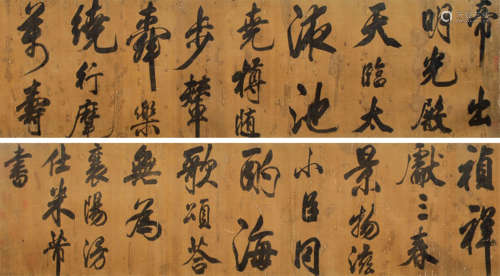 帝出
明光殿
天臨太
液池
堯樽隨
步輦
舜樂
繞行麾
萬壽
禎祥
獻三春
景物滋
小臣同
酌海
歌頌荅
無為
襄陽漫
仕米芾
書